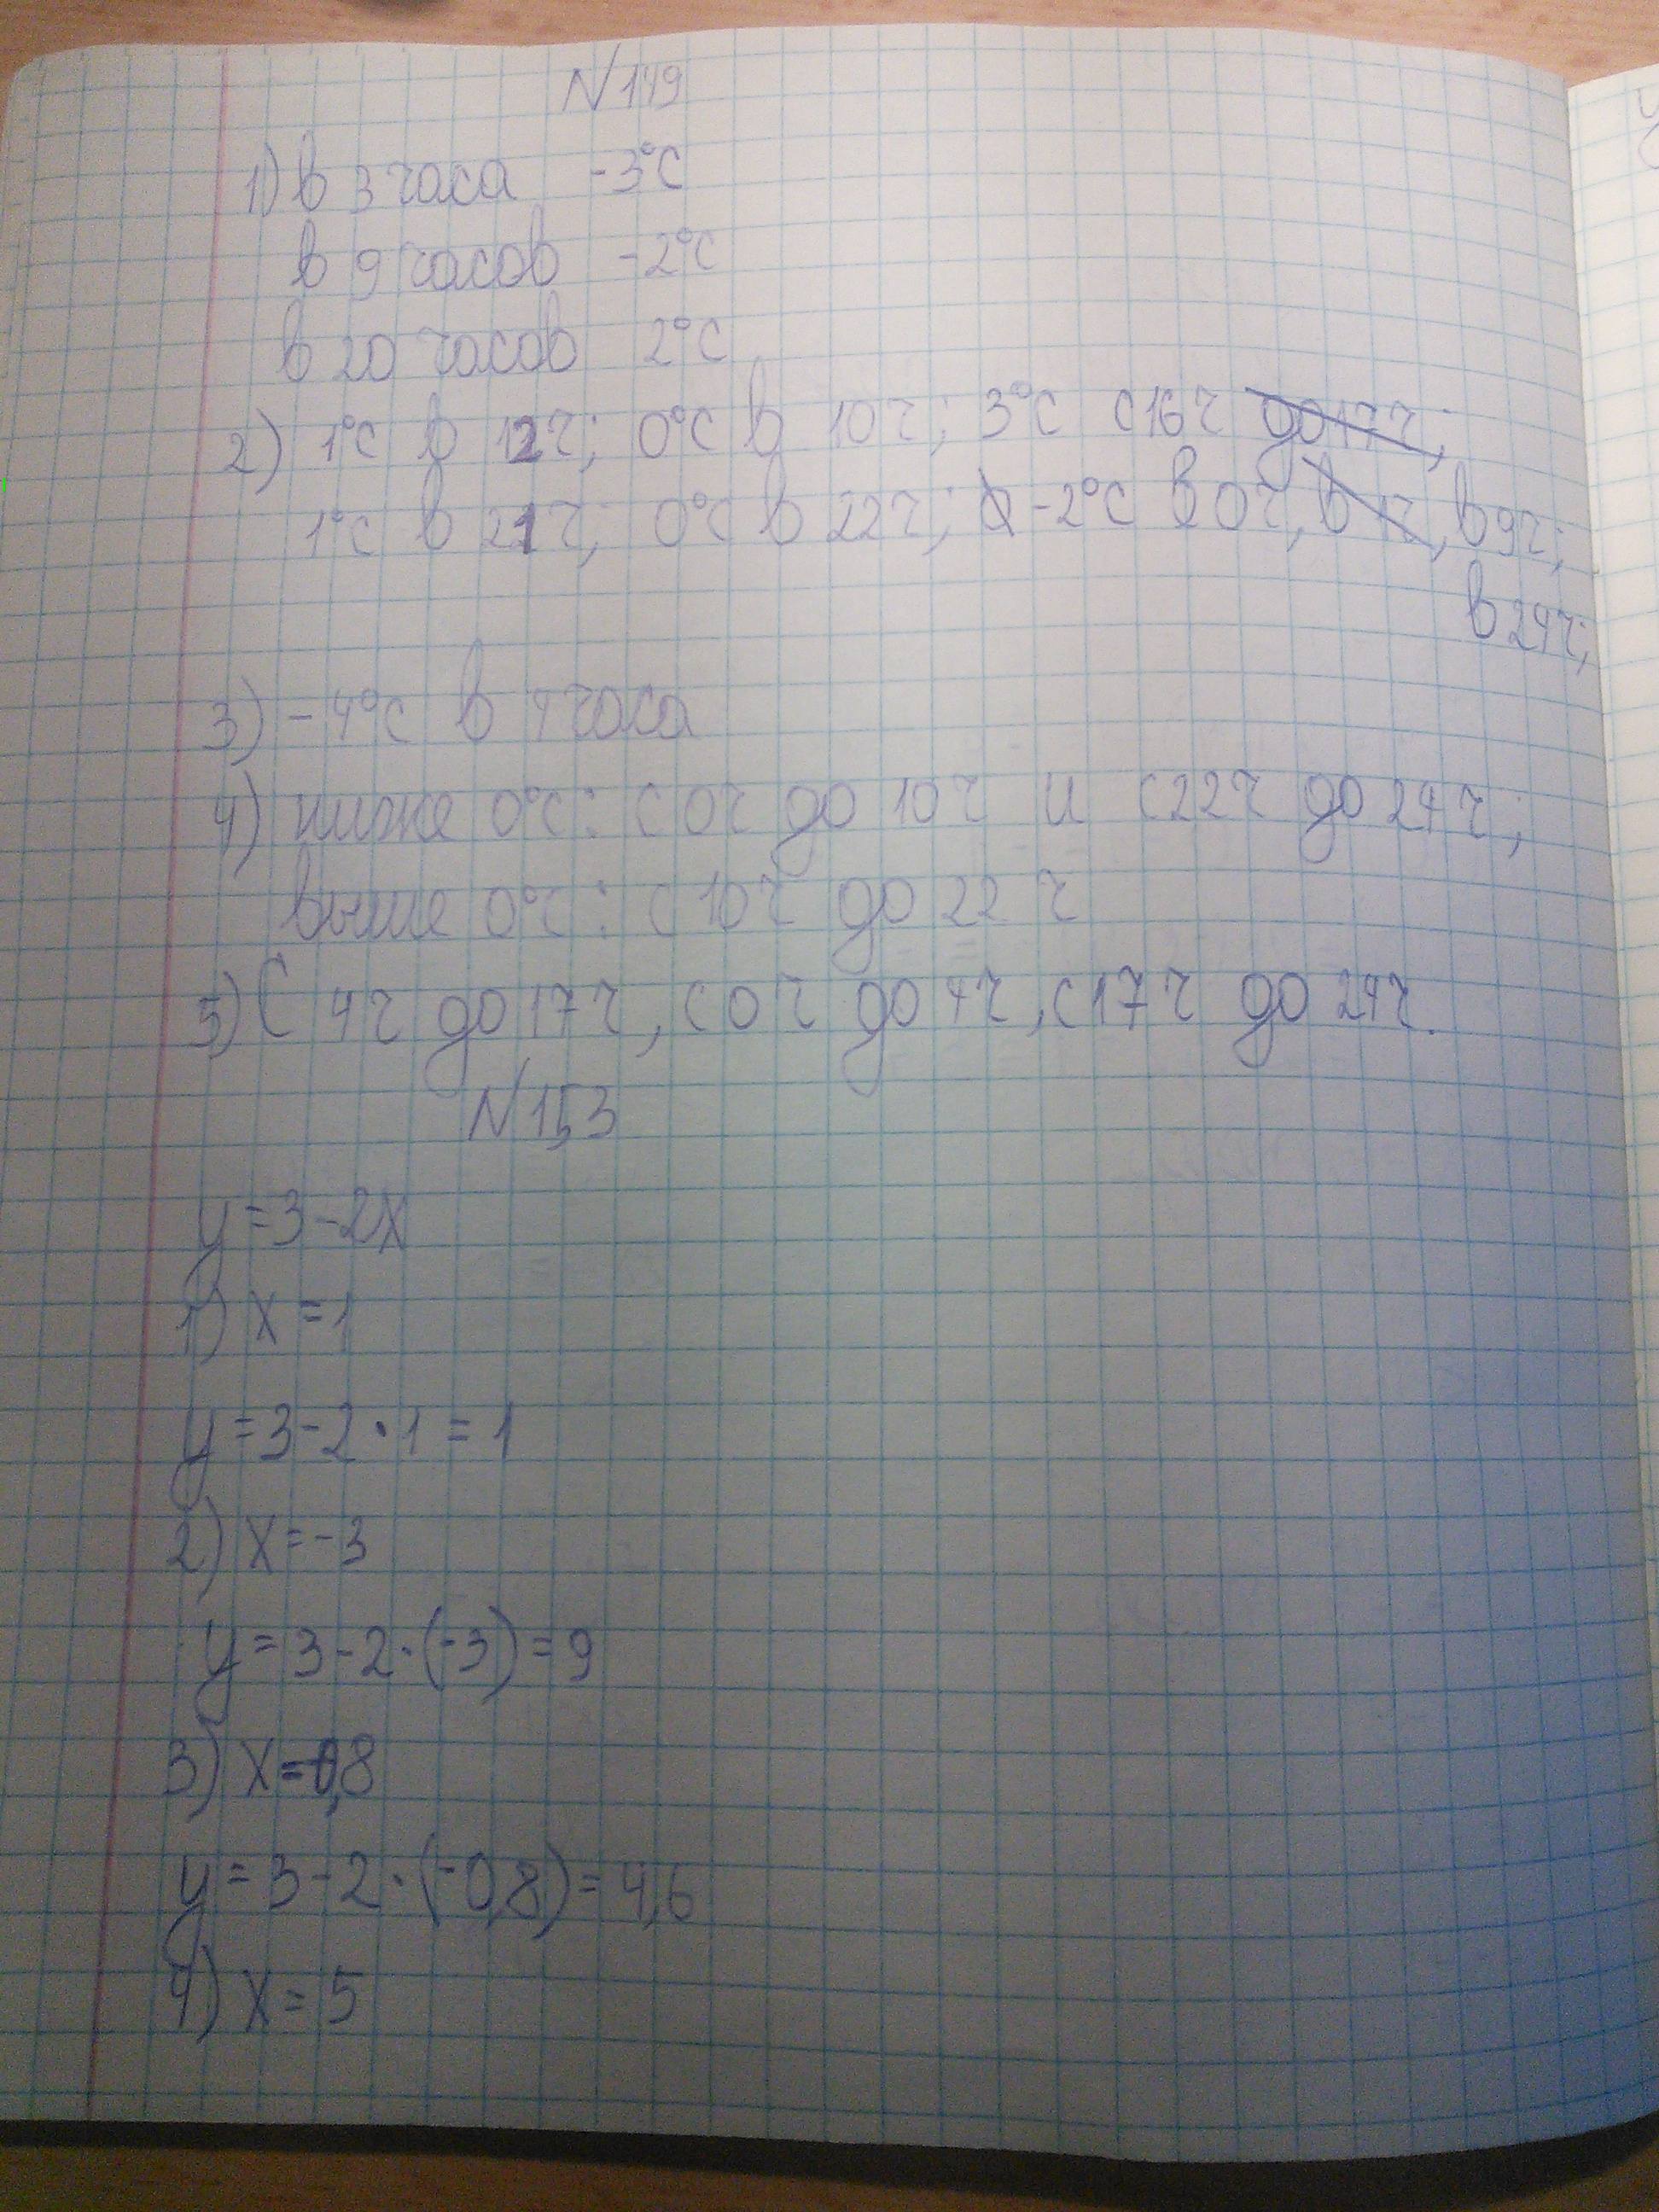 N 149
1) в 3 часа -3°С
в 9 часов -2°С
в 20 часов 2°С
2) 1°С в 12ч; 0°С в 10ч; 3°С с 16ч до 17ч;
1°С в 21ч; 0°С в 22ч; -2°С в 0ч, в 1ч, в 9ч;
в 24ч;
3) -4°С в 4 часа
4) ниже 0°С: с 0ч до 10ч и с 22ч до 24ч;
выше 0°С: с 10ч до 22ч
5) С 4ч до 17ч, с 0ч до 4ч, с 17ч до 24ч.
N 153
y = 3 - 2x
1) x = 1
y = 3 - 2 · 1 = 1
2) x = -3
y = 3 - 2 · (-3) = 9
3) x = -0,8
y = 3 - 2 · (-0,8) = 4,6
4) x = 5